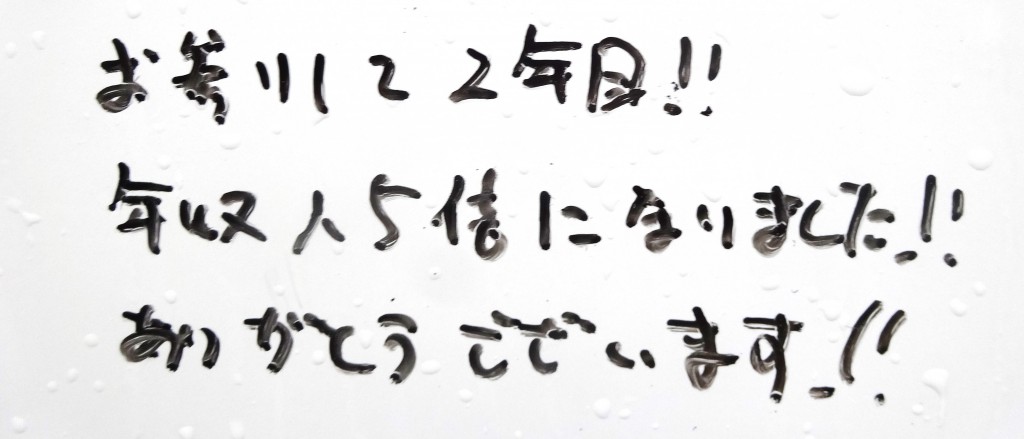 お参りして2年目!!
年収入5倍になりました!!
ありがとうございます!!